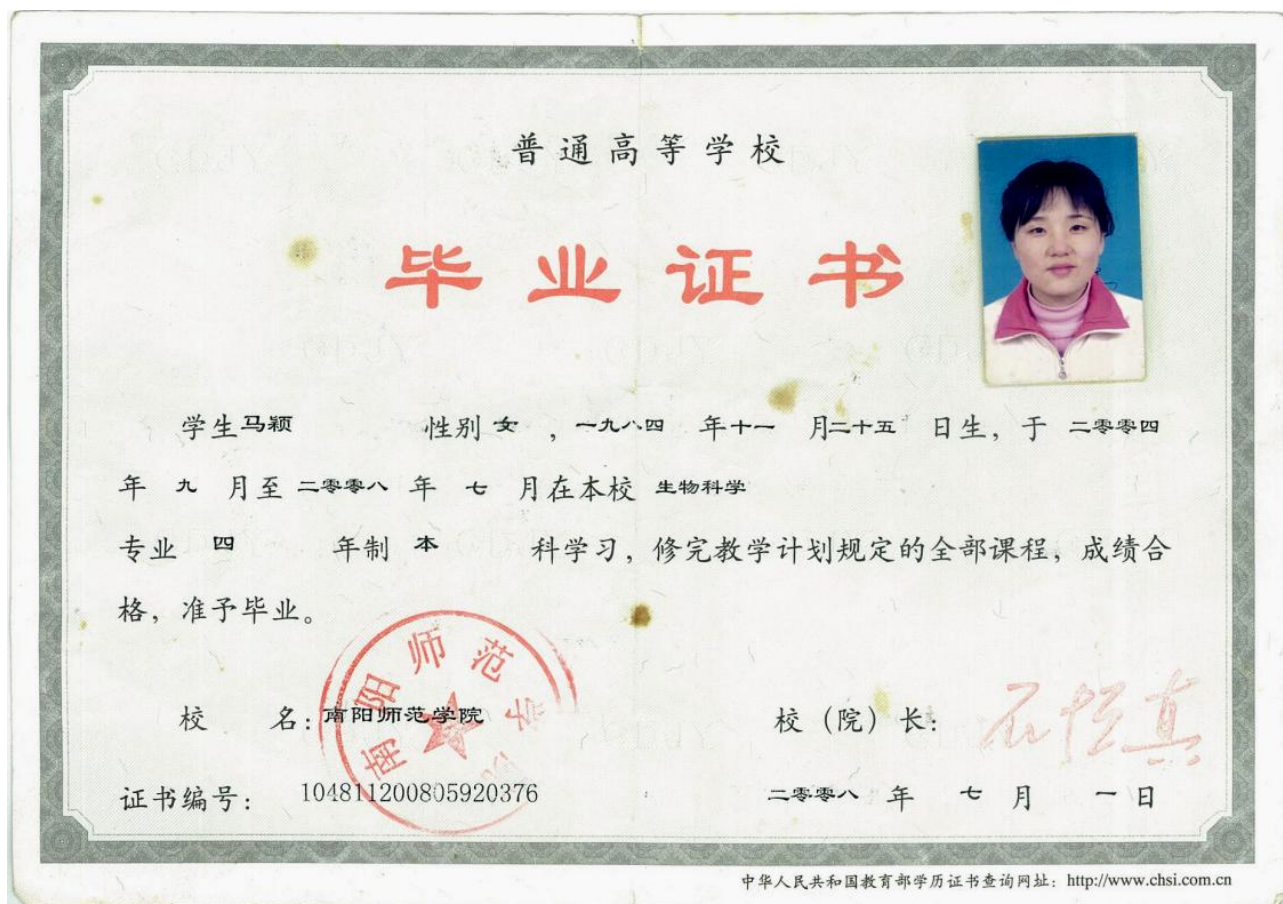 普通高等学校
毕业证书
学生马颖 性别 女 ，一九八四 年十一 月二十五 日生，于 二零零四
年 九 月至 二零零八 年 七 月在本校 生物科学
专业 四 年制 本 科学习，修完教学计划规定的全部课程，成绩合
格，准予毕业。
南阳师范学院
校 名：南阳师范学院 校（院）长：石恒真
证书编号： 104811200805920376 二零零八 年 七 月 一 日
中华人民共和国教育部学历证书查询网址：http://www.chsi.com.cn